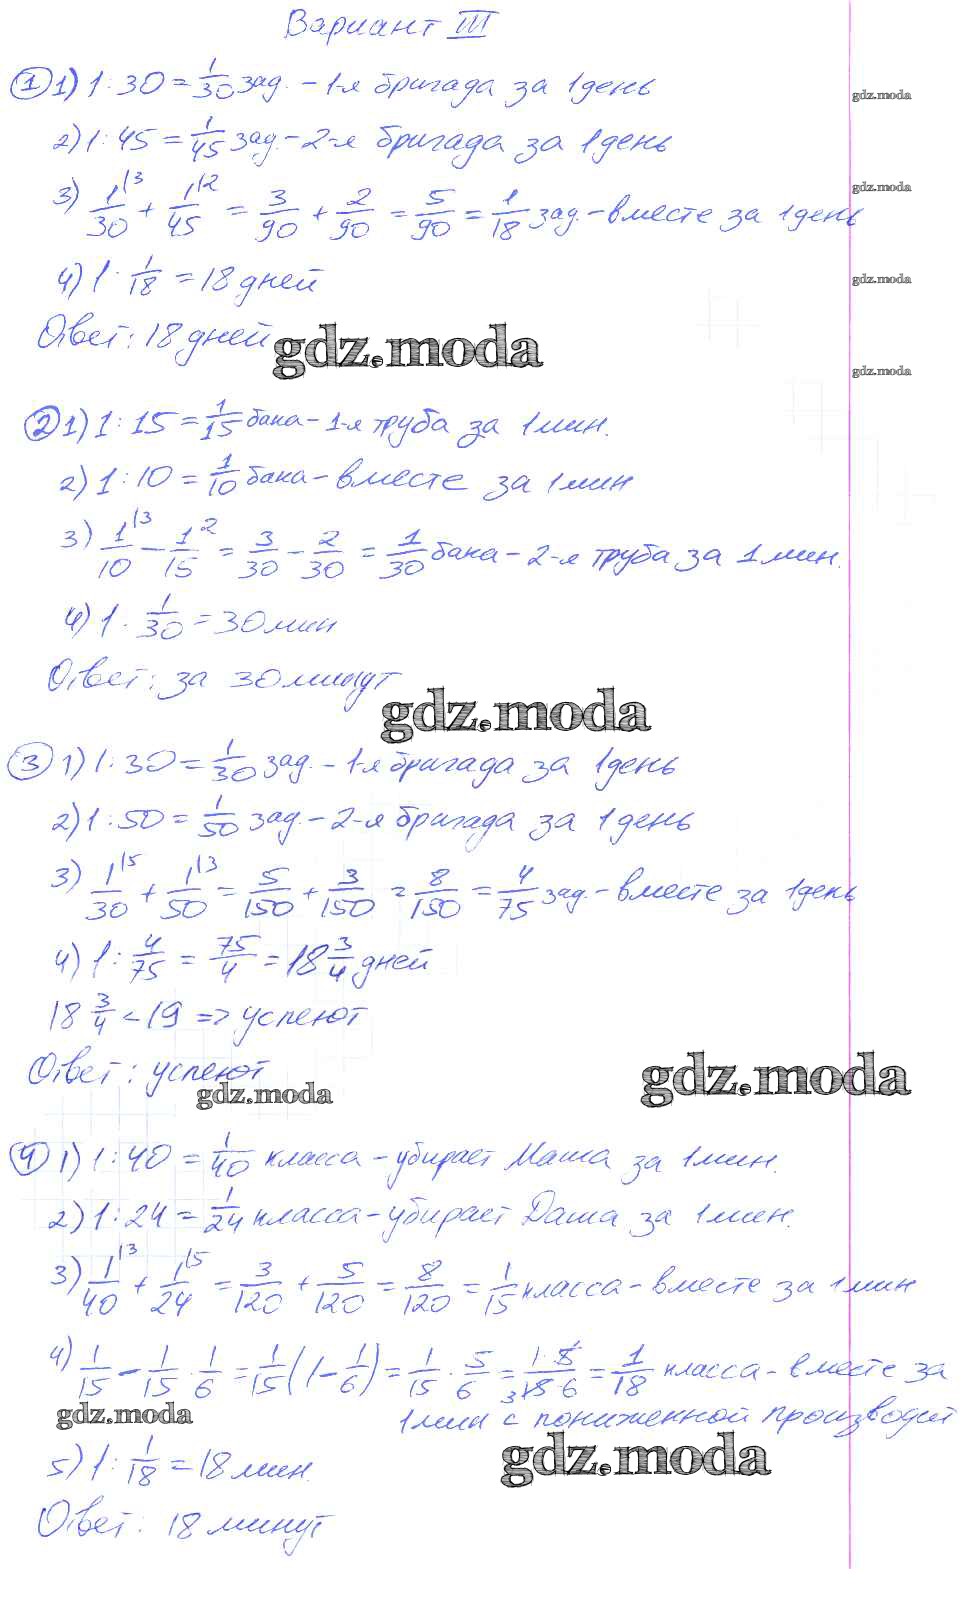 Вариант III
① 1) 1:30 = 1/30 зад. - 1-я бригада за 1 день
gdz.moda
2) 1:45 = 1/45 зад. - 2-я бригада за 1 день
gdz.moda
3) 1/30 |3 + 1/45 |2 = 3/90 + 2/90 = 5/90 = 1/18 зад. - вместе за 1 день
4) 1 · 1/18 = 18 дней
gdz.moda
Ответ: 18 дней
gdz.moda
gdz.moda
② 1) 1:15 = 1/15 бака - 1-я труба за 1 мин.
2) 1:10 = 1/10 бака - вместе за 1 мин
3) 1/10 |3 - 1/15 |2 = 3/30 - 2/30 = 1/30 бака - 2-я труба за 1 мин.
4) 1 · 1/30 = 30 мин
Ответ: за 30 минут
gdz.moda
③ 1) 1:30 = 1/30 зад. - 1-я бригада за 1 день
2) 1:50 = 1/50 зад. - 2-я бригада за 1 день
3) 1/30 |5 + 1/50 |3 = 5/150 + 3/150 = 8/150 = 4/75 зад. - вместе за 1 день
4) 1: 4/75 = 75/4 = 18 3/4 дней
18 3/4 < 19 => успеют
Ответ: успеют
gdz.moda
gdz.moda
④ 1) 1:40 = 1/40 класса - убирает Маша за 1 мин.
2) 1:24 = 1/24 класса - убирает Даша за 1 мин.
3) 1/40 |3 + 1/24 |5 = 3/120 + 5/120 = 8/120 = 1/15 класса - вместе за 1 мин
4) 1/15 - 1/15 · 1/6 = 1/15 (1 - 1/6) = 1/15 · 5/6 = 1·5/15·6 = 1/18 класса - вместе за
1 мин с пониженной производит
gdz.moda
gdz.moda
5) 1: 1/18 = 18 мин.
Ответ: 18 минут